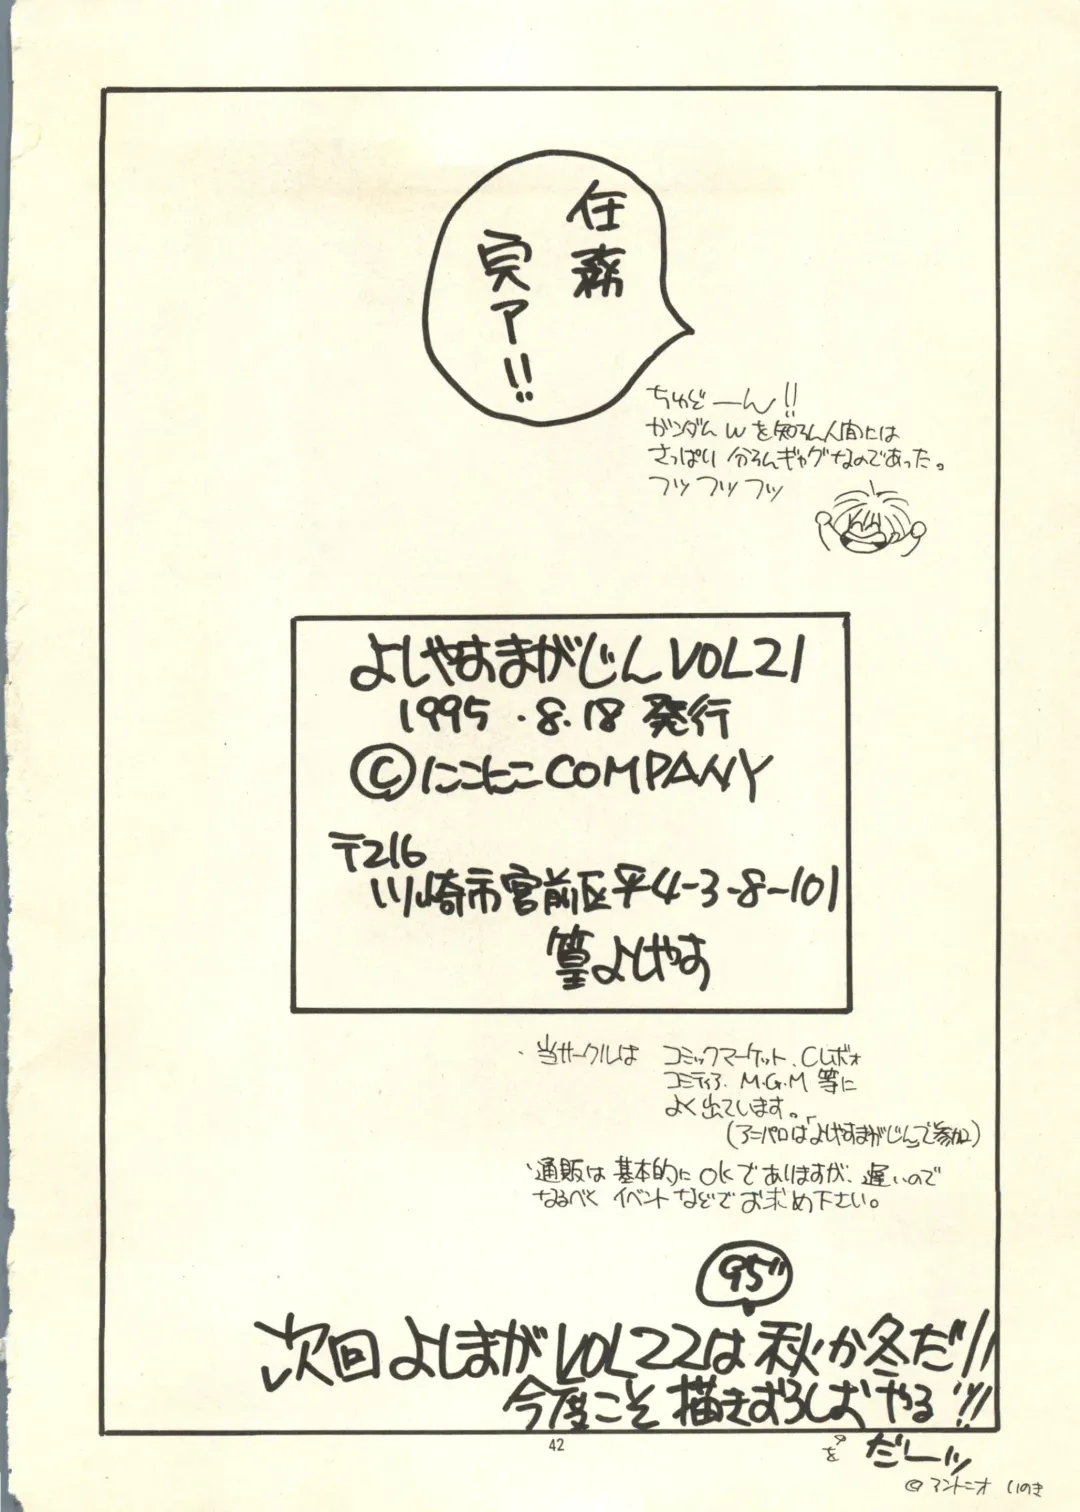 任務
完了!!
ちゅどーん!!
ガンダムWを知らん人間には
さっぱり分らんギャグなのであった。
フッフッフッ
よしやすまがじんVOL21
1995.8.18発行
©にこにこCOMPANY
〒216
川崎市宮前区平4-3-8-101
篁よしやす
・当サークルは コミックマーケット、Cレボォ
コミティア、M.G.M 等に
よく出ています。
(アニパロは「よしやすまがじん」で参加)
・通販は基本的にOKでありますが、遅いので
なるべくイベントなどでお求め下さい。
95"
次回よしまがVOL22は秋か冬だ!!
今度こそ描きおろしをやる!!!
だーッ
©アントニオ いのき
42